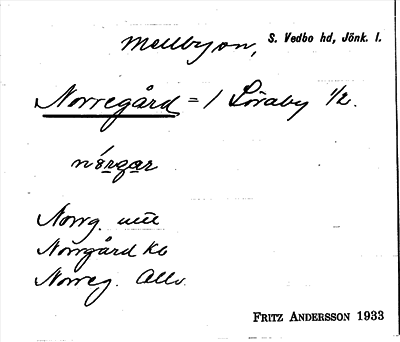 Mellbyson, S. Vedbo hd, Jönk. l.
Norregård = / Löraby 1/2.
nórgar
Norrg. utt
Norrgård Kb
Norreg. Allv.
FRITZ ANDERSSON 1933